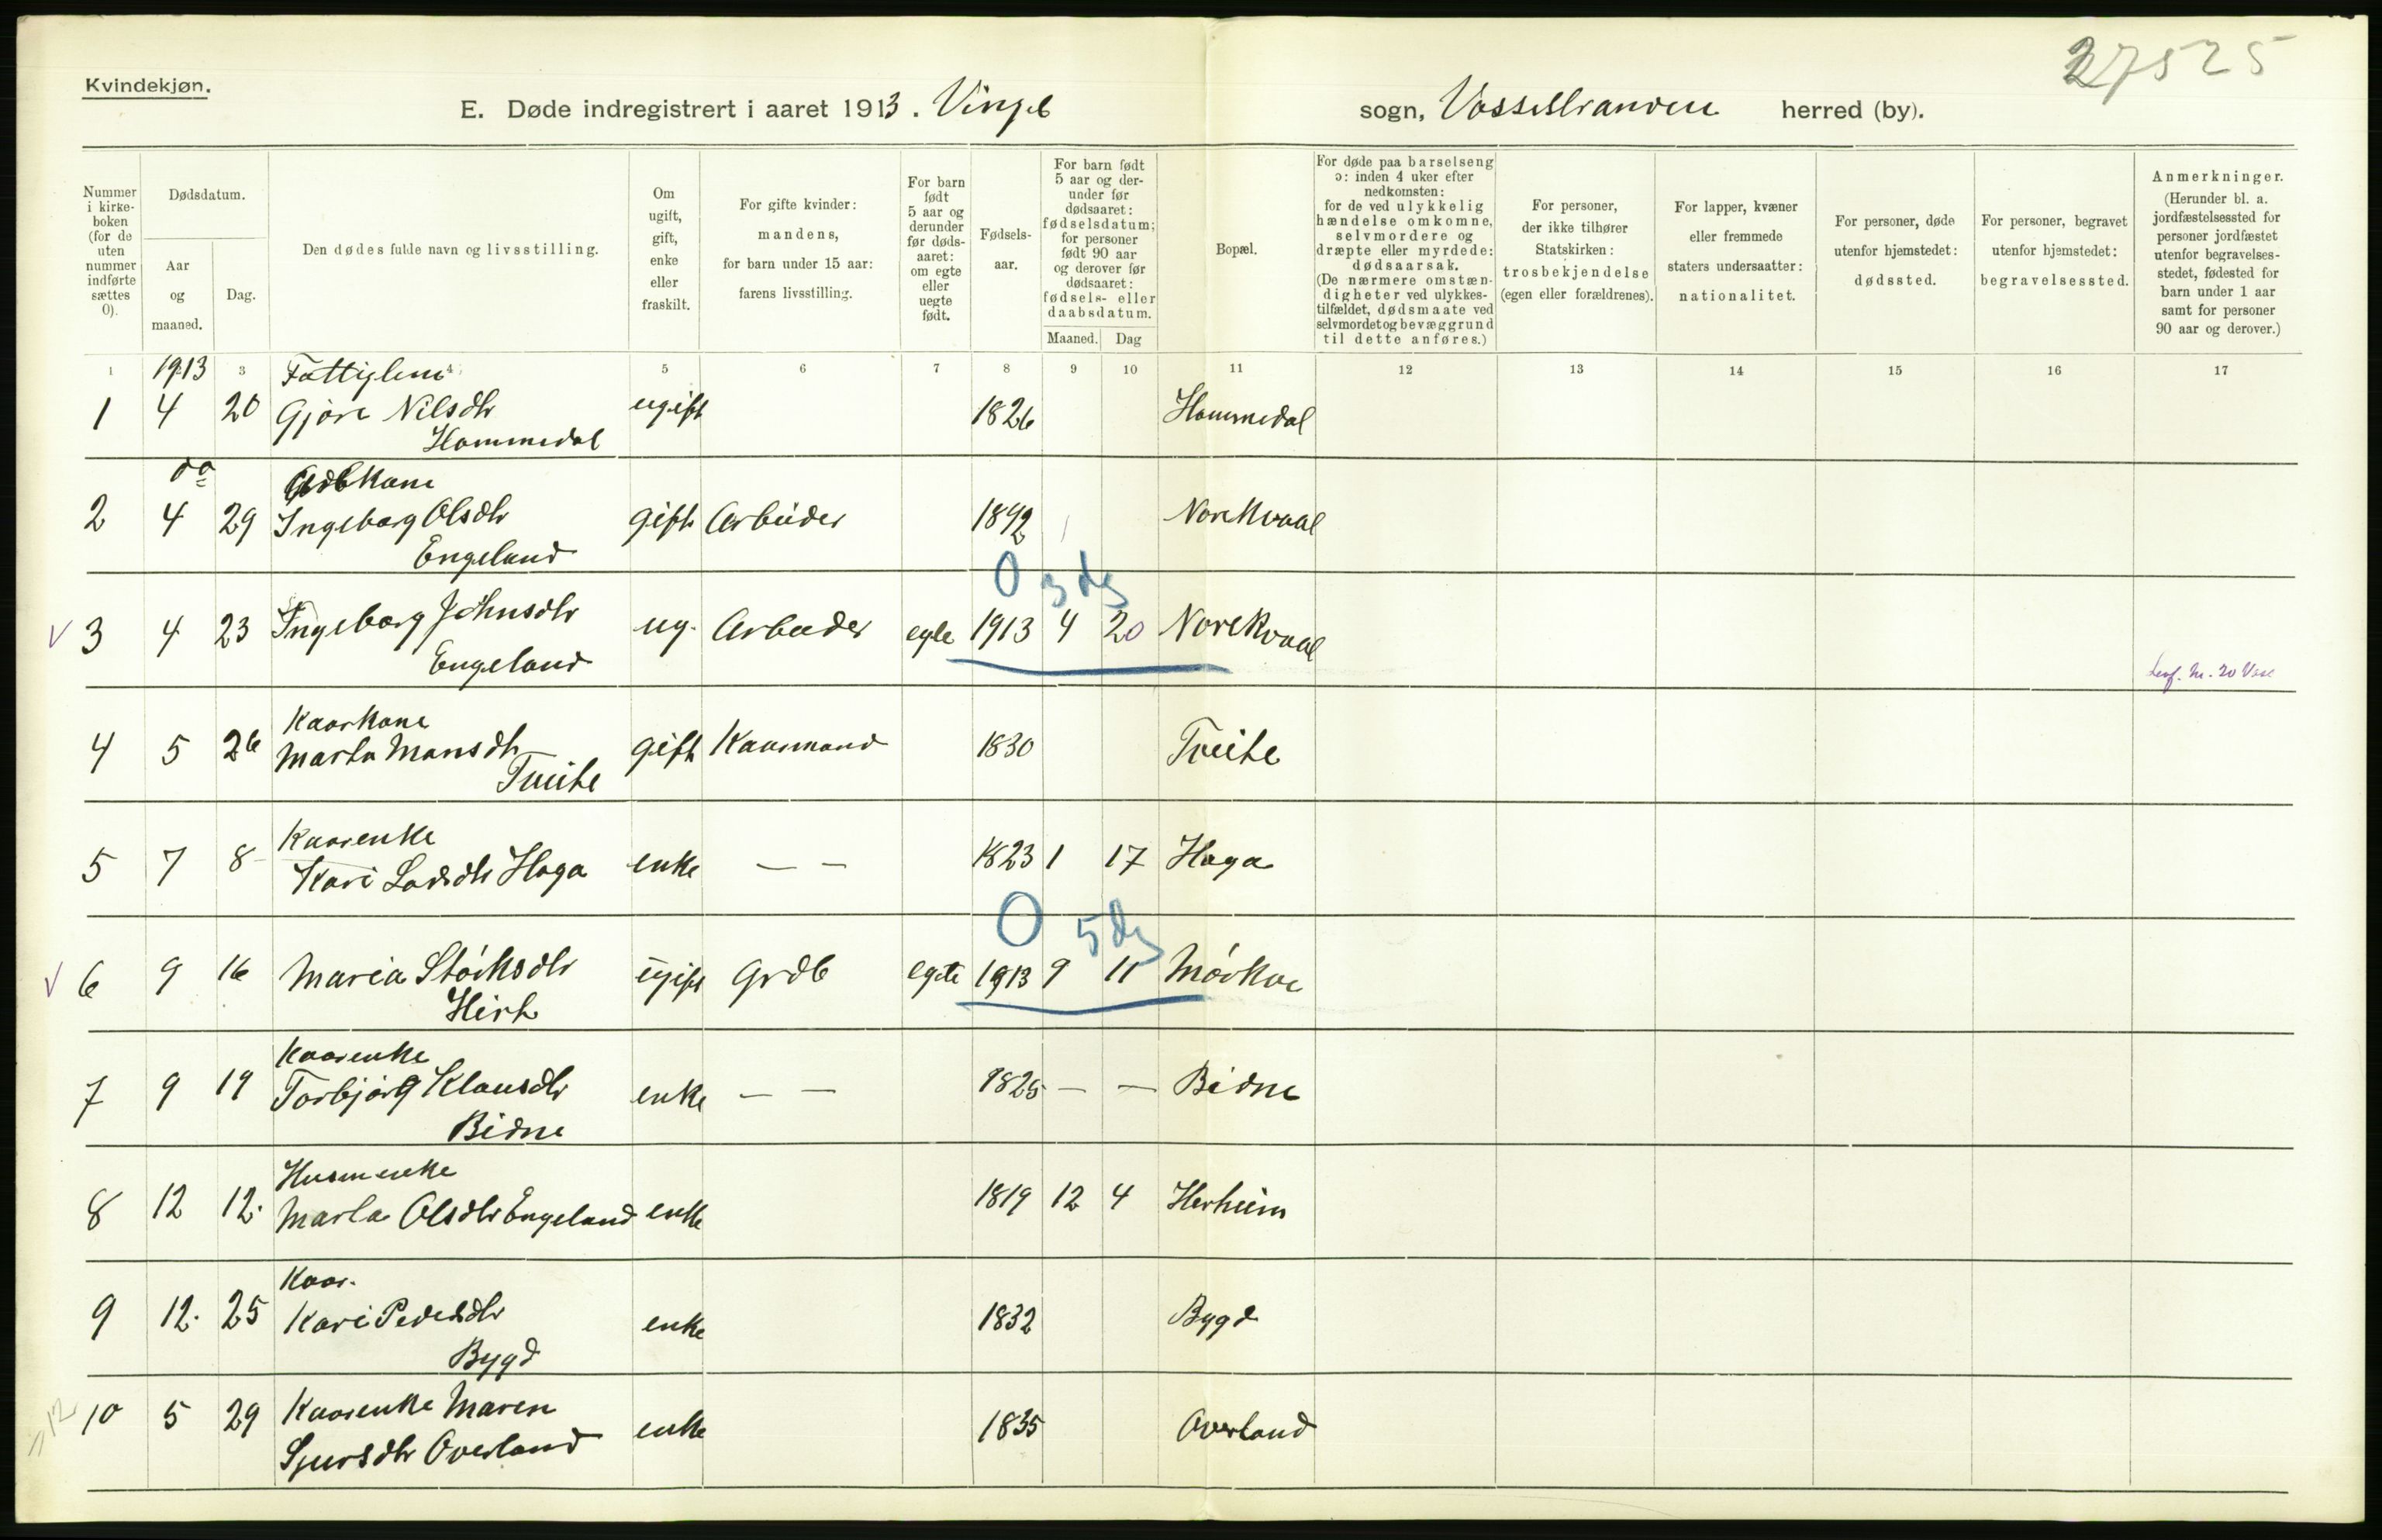 27525
Kvindekjøn.
E. Døde indregistrert i aaret 1913. Vinje sogn, Vossestranden herred (by).
Nummer i kirke- boken (for de uten nummer indførte sættes 0).
Dødsdatum.
Aar og maaned.
Dag.
Den dødes fulde navn og livsstilling.
Om ugift, gift, enke eller fraskilt.
For gifte kvinder: mandens, for barn under 15 aar: farens livsstilling.
For barn født 5 aar og derunder før døds- aaret: om egte eller uegte født.
Fødsels- aar.
For barn født 5 aar og der- under før dødsaaret: fødselsdatum; for personer født 90 aar og derover før dødsaaret: fødsels- eller daabsdatum.
Maaned. Dag
Bopæl.
For døde paa barselseng ɔ: inden 4 uker efter nedkomsten: for de ved ulykkelig hændelse omkomne, selvmordere og dræpte eller myrdede: dødsaarsak. (De nærmere omstæn- digheter ved ulykkes- tilfældet, dødsmaate ved selvmordet og bevæggrund til dette anføres.)
For personer, der ikke tilhører Statskirken: trosbekjendelse (egen eller forældrenes).
For lapper, kvæner eller fremmede staters undersaatter: nationalitet.
For personer, døde utenfor hjemstedet: dødssted.
For personer, begravet utenfor hjemstedet: begravelsessted.
Anmerkninger. (Herunder bl. a. jordfæstelsessted for personer jordfæstet utenfor begravelses- stedet, fødested for barn under 1 aar samt for personer 90 aar og derover.)
1 1913 3 4 5 6 7 8 9 10 11 12 13 14 15 16 17
Fattiglem
1 4 20 Gjøre Nilsdtr ugift 1826 Hommedal
Hommedal
do
Grdbkone
2 4 29 Ingeborg Olsdtr gift Arbeider 1892 Norekvaal
Engeland
0 3 dg
V 3 4 23 Ingeborg Johnsdtr ug. Arbeider egte 1913 4 20 Norekvaal
Engeland
Kaarkone
4 5 26 Marta Monsdtr gift Kaarmand 1830 Tveite
Tveite
Kaarenke
5 7 8 Kari Larsdtr Haga enke — — 1823 1 17 Haga
0 5 dg
V 6 9 16 Maria Størksdtr ugift Grdb egte 1913 9 11 Mørkve
Hirt
Kaarenke
7 9 19 Torbjørg Klausdtr enke — — 1825 — — Bidne
Bidne
Husmenke
8 12 12. Marta Olsdtr Engeland enke 1819 12 4 Herheim
Kaar.
9 12. 25 Kari Pedersdtr enke 1832 Bygd
Bygd
10 5 29 Kaarenke Maren enke 1835 Overland
Sjursdtr Overland